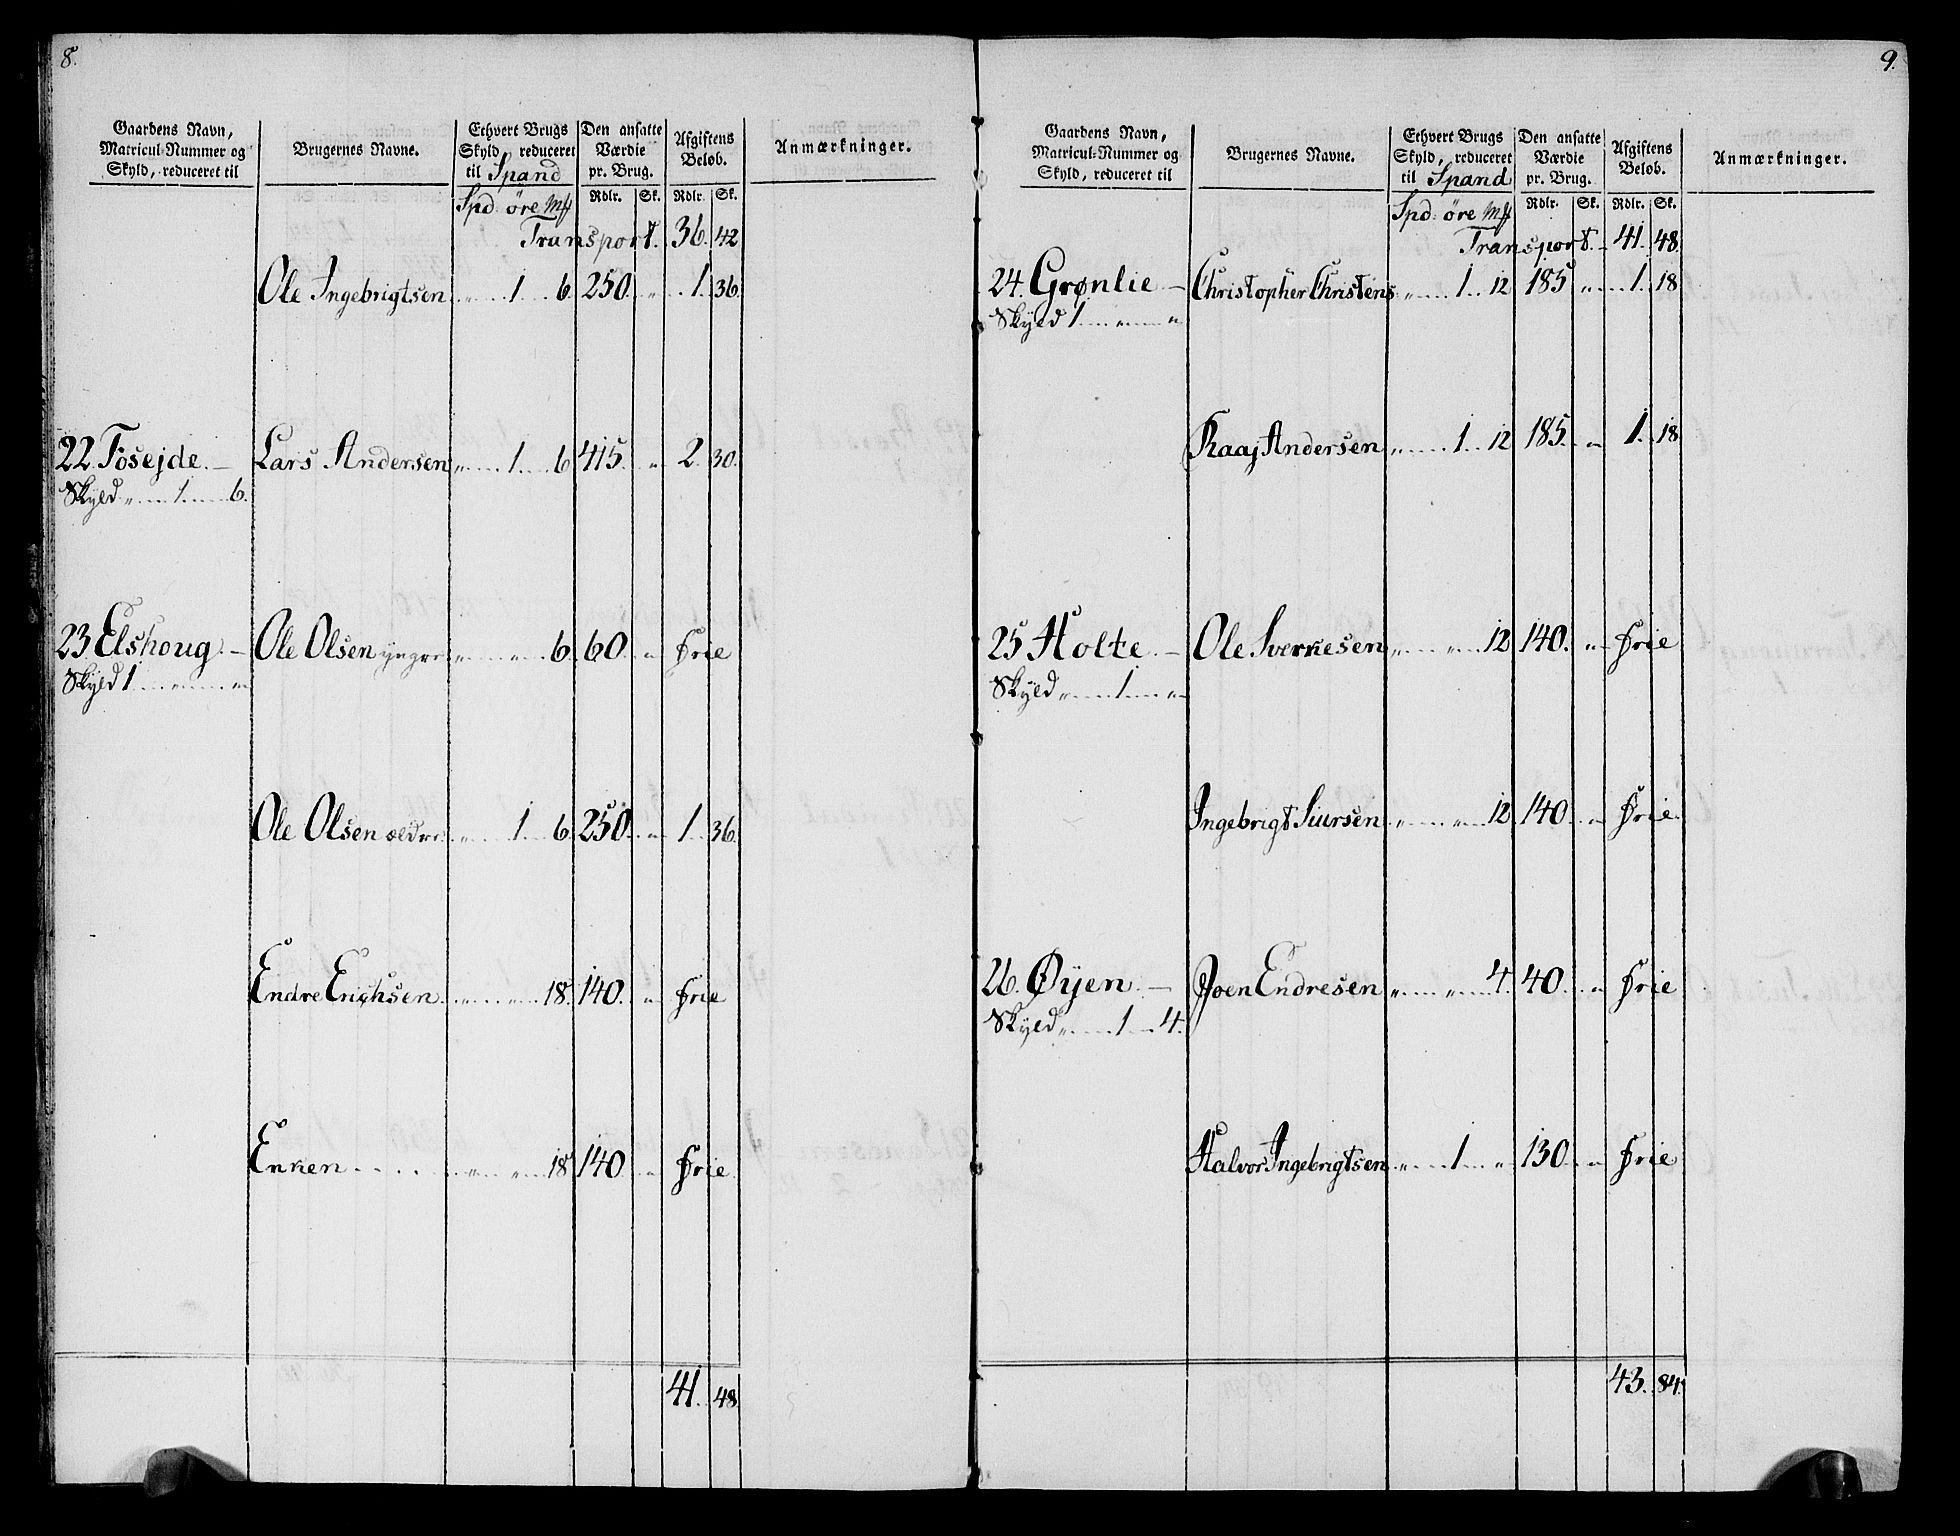 8.
Gaardens Navn, Matricul-Nummer og Skyld, reduceret til
Brugernes Navne.
Ethvert Brugs Skyld, reduceret til Spand
Den ansatte Værdie pr. Brug.
Afgiftens Beløb.
Anmærkninger.
Spd: öre Mf Rdlr. Sk. Rdlr. Sk.
Transport. 36. 42
Ole Ingebrigtsen „ 1 6. 250. „ 1. 36.
22. Fösejde. — Lars Andersen „ 1 6 415. „ 2. 30.
Skyld „ 1 6.
23 Elshoug — Ole Olsen yngre „ „ 6. 60. „ Frie
Skyld 1 „ „
Ole Olsen ældre „ 1 6. 250. „ 1. 36.
Endre Erichsen „ „ 18. 140. „ Frie
Enken „ „ 18 140 „ Frie
41. 48
9.
Gaardens Navn, Matricul-Nummer og Skyld, reduceret til
Brugernes Navne.
Ethvert Brugs Skyld, reduceret til Spand
Den ansatte Værdie pr. Brug.
Afgiftens Beløb.
Anmærkninger.
Spd: öre Mf Rdlr. Sk. Rdlr. Sk.
Transport. 41. 48.
24. Grønlie — Christopher Christens „ 1 12 185 „ 1. 18
Skyld 1 „ „
Raaj Andersen „ 1 12 185. „ 1. 18
25 Holte — Ole Sverkesen „ „ 12 140. „ Frie
Skyld „ 1 „
Ingebrigt Siursen „ „ 12 140. „ Frie
26. Øyen — Joen Endresen „ „ 4. 40. „ Frie
Skyld „ 1 4.
Halvor Ingebrigtsen „ 1 „ 130. „ Frie
43. 84.